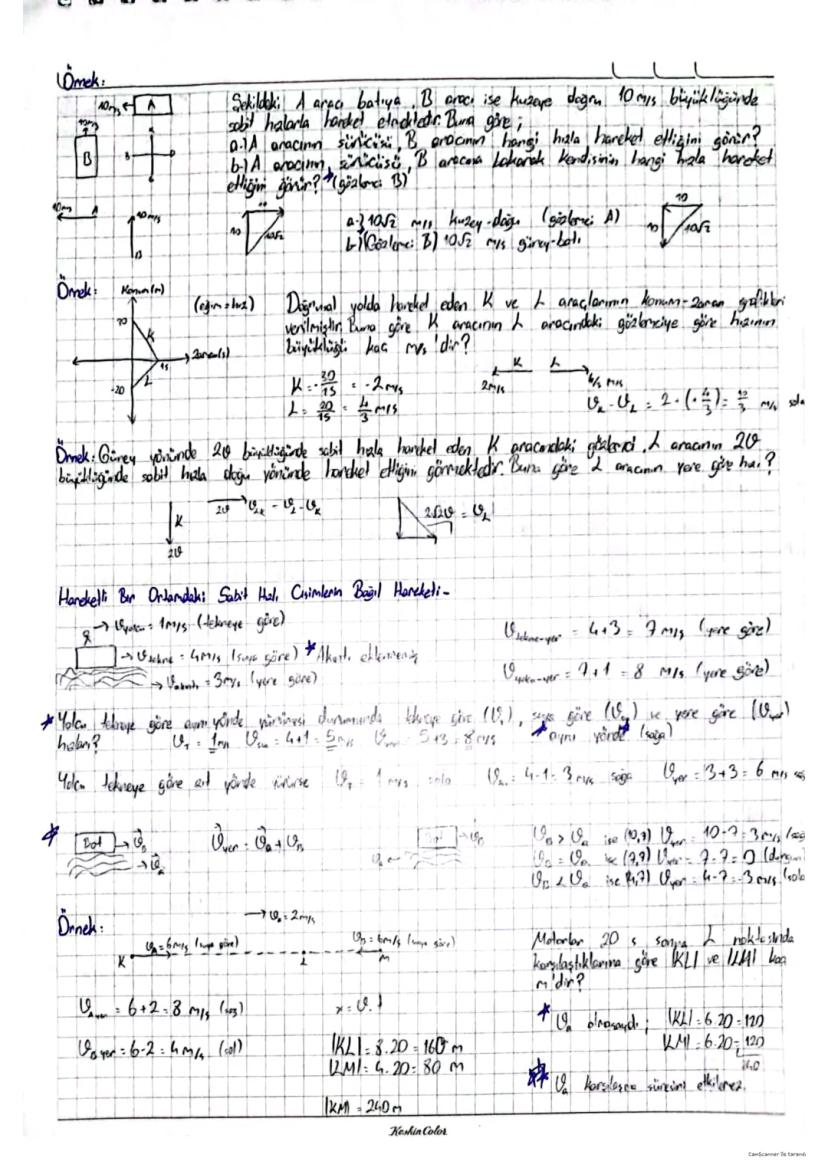 Örnek:
10m/s ← A
10m/s
B
Şekildeki A aracı batıya, B aracı ise kuzeye doğru 10 m/s büyüklüğünde
sabit hızlarla hareket etmektedir. Buna göre;
a-) A aracının sürücüsü, B aracının hangi hızla hareket ettiğini görür?
b-) A aracının sürücüsü, B aracına bakarak kendisinin hangi hızla hareket
ettiğini görür? (gözlemci B)
10m/s A
10m/s
B
10
10 10√2
a-) 10√2 m/s kuzey-doğu (gözlemci A)
b-) (Gözlemci B) 10√2 m/s güney-batı
10
10 10√2
Örnek:
Konum(m)
K
L
-20
15
Zaman(s)
(eğim = hız)
Doğrusal yolda hareket eden K ve L araçlarının konum-zaman grafikleri
verilmiştir. Buna göre K aracının L aracındaki gözlemciye göre hızının
büyüklüğü kaç m/s'dir?
K = -30/15 = -2 m/s
L = 20/15 = 4/3 m/s
K
2m/s
L
4/3 m/s
Örnek: Güney yönünde 2ϑ büyüklüğünde sabit hızla hareket eden K aracındaki gözlemci, L aracının 2ϑ
büyüklüğünde sabit hızla doğu yönünde hareket ettiğini görmektedir. Buna göre L aracının yere göre hızı?
K
2ϑ
2ϑ ϑLK = ϑL - ϑK
2√2ϑ = ϑL
Hareketli Bir Ortamdaki Sabit Hızlı Cisimlerin Bağıl Hareketi-
→ ϑyolcu = 1m/s (tekneye göre)
→ ϑtekne = 4m/s (suya göre) * Akıntı eklenmemiş
→ ϑakıntı = 3m/s (yere göre)
ϑtekne-yer = 4+3 = 7 m/s (yere göre)
ϑyolcu-yer = 7+1 = 8 m/s (yere göre)
* Yolcu tekneye göre aynı yönde yürümesi durumunda tekneye göre (ϑT), suya göre (ϑsu) ve yere göre (ϑyer)
hızları? ϑT = 1m/s ϑsu = 4+1 = 5m/s ϑyer = 5+3 = 8m/s * aynı yönde (sağa)
Yolcu tekneye göre zıt yönde yürürse ϑT = 1 m/s sola ϑsu = 4-1 = 3 m/s sağa ϑyer = 3+3 = 6 m/s
* Bot → ϑB
→ ϑa
ϑyer = ϑa + ϑB
Bot → ϑB
ϑa ←
ϑB > ϑa ise (10,7) ϑyer = 10-7 = 3m/s
ϑB = ϑa ise (7,7) ϑyer = 7-7 = 0
ϑB < ϑa ise (4,7) ϑyer = 4-7 = -3m/s (sola
Örnek:
→ ϑa = 2m/s
ϑA = 6m/s (suya göre)
ϑB = 6m/s (suya göre)
K L M
Motorlar 20 s sonra L noktasında
karşılaştıklarına göre |KL| ve |LM| kaç
m'dir?
ϑAyer = 6+2 = 8 m/s (sağ)
x = ϑ.t
ϑB yer = 6-2 = 4m/s (sol)
|KL| = 8.20 = 160 m
|LM| = 4.20 = 80 m
|KM| = 240m
* ϑa olmasaydı; |KL| = 6.20 = 120
|LM| = 6.20 = 120
240
* ϑa karşılaşma süresini etkilemez.
Keskin Color
CamScanner ile tarandı